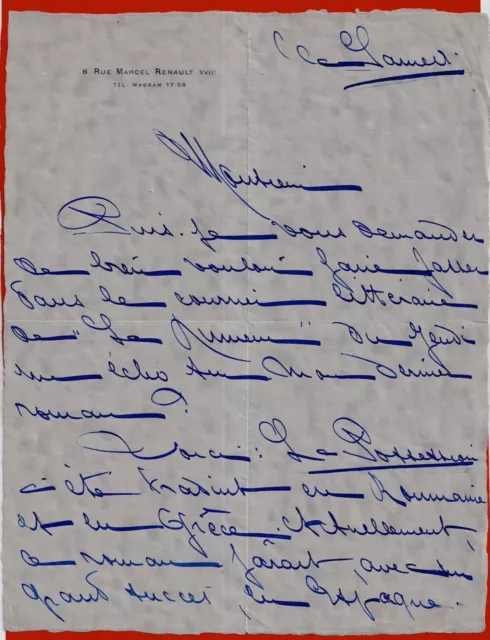 Ce Samedi.
6 RUE MARCEL RENAULT XVII
TEL: WAGRAM 17-59
Monsieur
Puis-je vous demander
de bien vouloir faire passer
dans le courrier littéraire
de "Le Rumeur" du Jeudi
un écho sur mon dernier
roman?
Voici: La Possession
a été traduit en Roumanie
et en Grèce. Actuellement,
ce roman paraît, avec un
grand succès en Espagne.